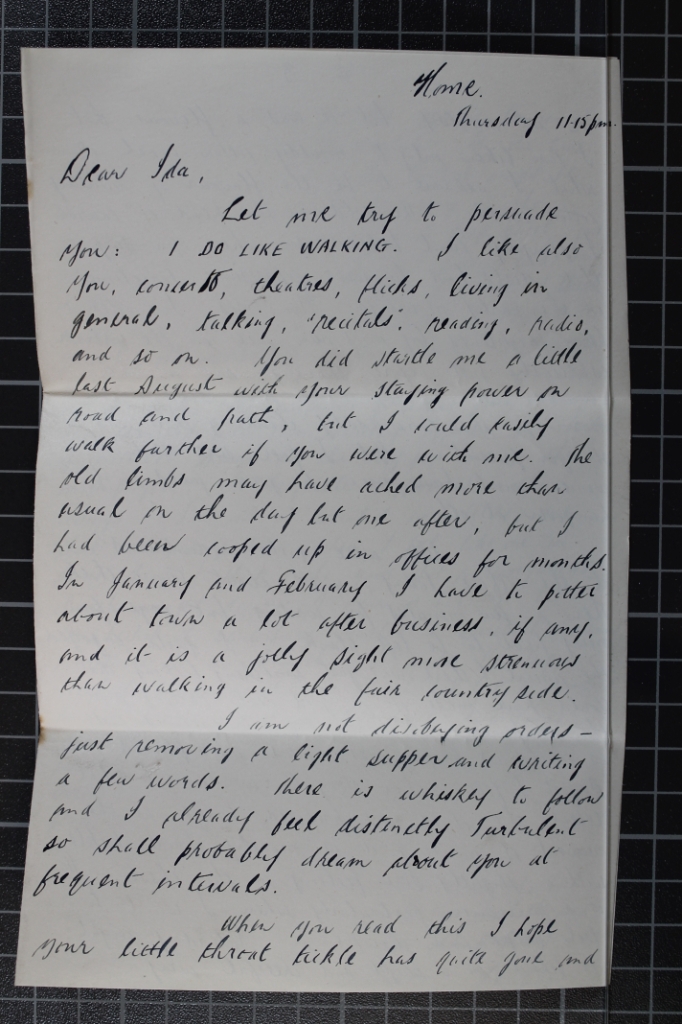 Home.
Thursday 11-15pm.
Dear Ida,
Let me try to persuade
you: I DO LIKE WALKING. I like also
you, concerts, theatres, flicks, living in
general, talking, "recitals", reading, radio,
and so on. You did startle me a little
last August with your staying power on
road and path, but I could easily
walk further if you were with me. The
old limbs may have ached more than
usual on the day but one after, but I
had been cooped up in offices for months.
In January and February I have to potter
about town a lot after business, if any,
and it is a jolly sight more strenuous
than walking in the fair country side.
I am not disobeying orders –
just removing a light supper and writing
a few words. There is whiskey to follow
and I already feel distinctly Turbulent
so shall probably dream about you at
frequent intervals.
When you read this I hope
your little throat tickle has quite gone and